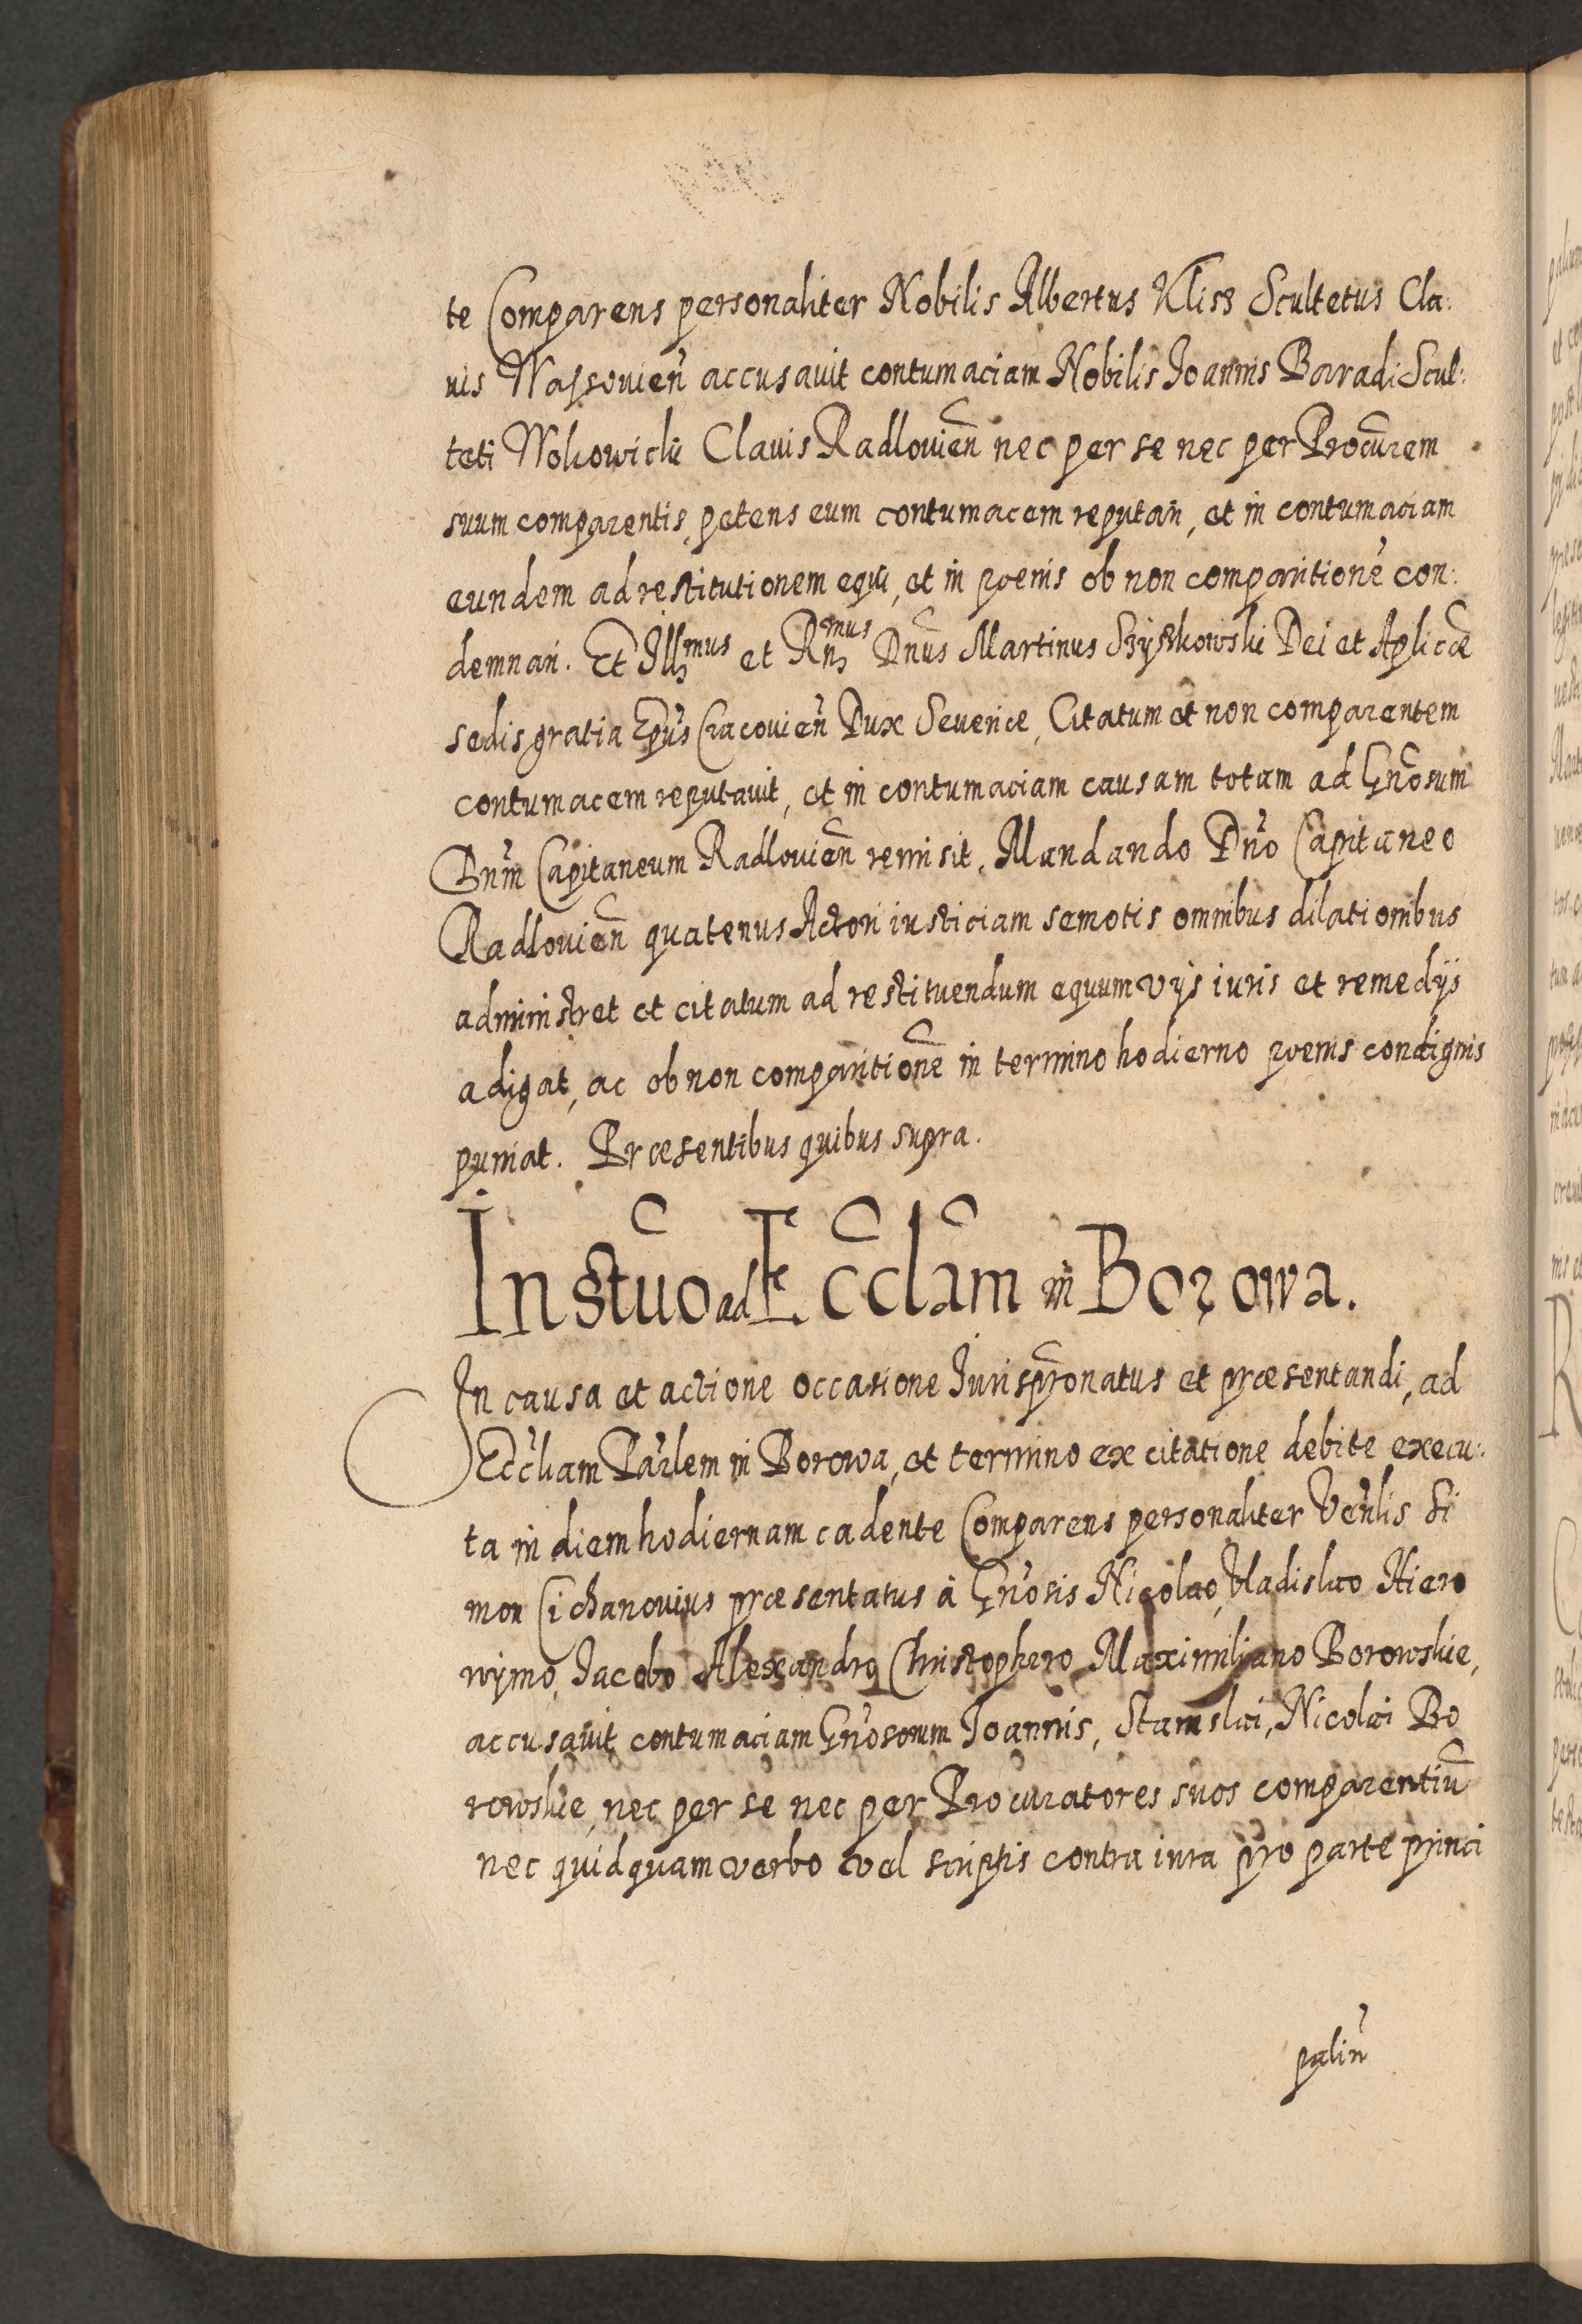 te Comparens personaliter Nobilis Albertus Klisz Scultetus Cla:
uis Wassouien̄ accusauit contumaciam Nobilis Joannis Baradi Scul:
teti Wokowicki Clauis Radlouien̄ nec per se nec per Procūrem
suum comparentis, petens eum contumacem reputari, et in contumaciam
eundem ad restitutionem equi, et in poenis ob non comparitionē con:
demnari. Et Illmus et Rnmus Dnūs Martinus Szyszkowski Dei et Aplicæ
sedis gratia Epūs Cracouien̄ Dux Seueriæ, Citatum et non comparentem
contumacem reputauit, et in contumaciam causam totam ad Gnōsum
Dnm̄ Capitaneum Radlouien̄ remisit, Mandando Dn̄o Capitaneo
Radlouien̄ quatenus Actori iusticiam semotis omnibus dilationibus
administret et citatum ad restituendum equum vijs iuris et remedijs
adigat, ac ob non comparitionē in termino hodierno poenis condignis
puniat. Præsentibus quibus supra.
Instūo ad Eccl̄am in Borowa.
In causa et actione occasione Jurisprōnatus et præsentandi, ad
Eccl̄iam Parlem in Borowa, et termino ex citatione debite execu:
ta in diem hodiernam cadente Comparens personaliter Venlis Si
mon Cichanouius præsentatus à Gnōsis Nicolao, Vladislao Hiero
nijmo, Jacobo Alexandro Christophero Maximiliano Borowskie,
accusauit contumaciam Gnōsorum Joannis, Stanislai, Nicolai Bo
rowskie, nec per se nec per Procuratores suos comparentiū
nec quidquam verbo vel scriptis contra iura pro parte princi
palin̄